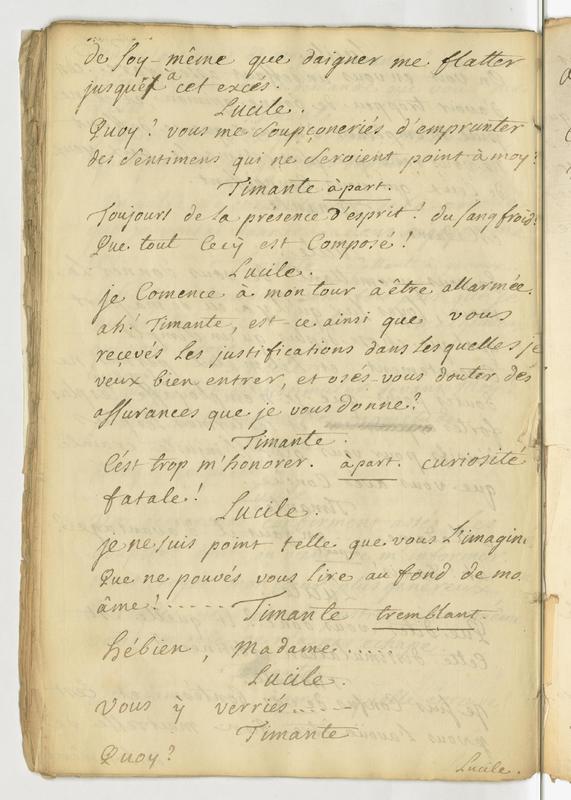 de soy-même que daigner me flatter
jusqu'à cet excés.
Lucile.
Quoy? vous me soupçonneriés d'emprunter
des sentimens qui ne seroient point à moy?
Timante àpart.
Toujours de la présence d'esprit! du sangfroid!
Que tout cecÿ est composé!
Lucile.
je comence à mon tour à être allarmée.
ah! Timante, est-ce ainsi que vous
reçevés les justifications dans lesquelles je
veux bien entrer, et osés-vous douter des
assurances que je vous donne?
Timante.
C'ést trop m'honorer. àpart. curiosité
fatale!
Lucile.
je ne suis point telle que vous l'imagin
Que ne pouvés vous lire au fond de mo
âme! ...... Timante tremblant.
hébien, Madame .....
Lucile.
vous ÿ verriés....-
Timante
Quoy?
Lucile.